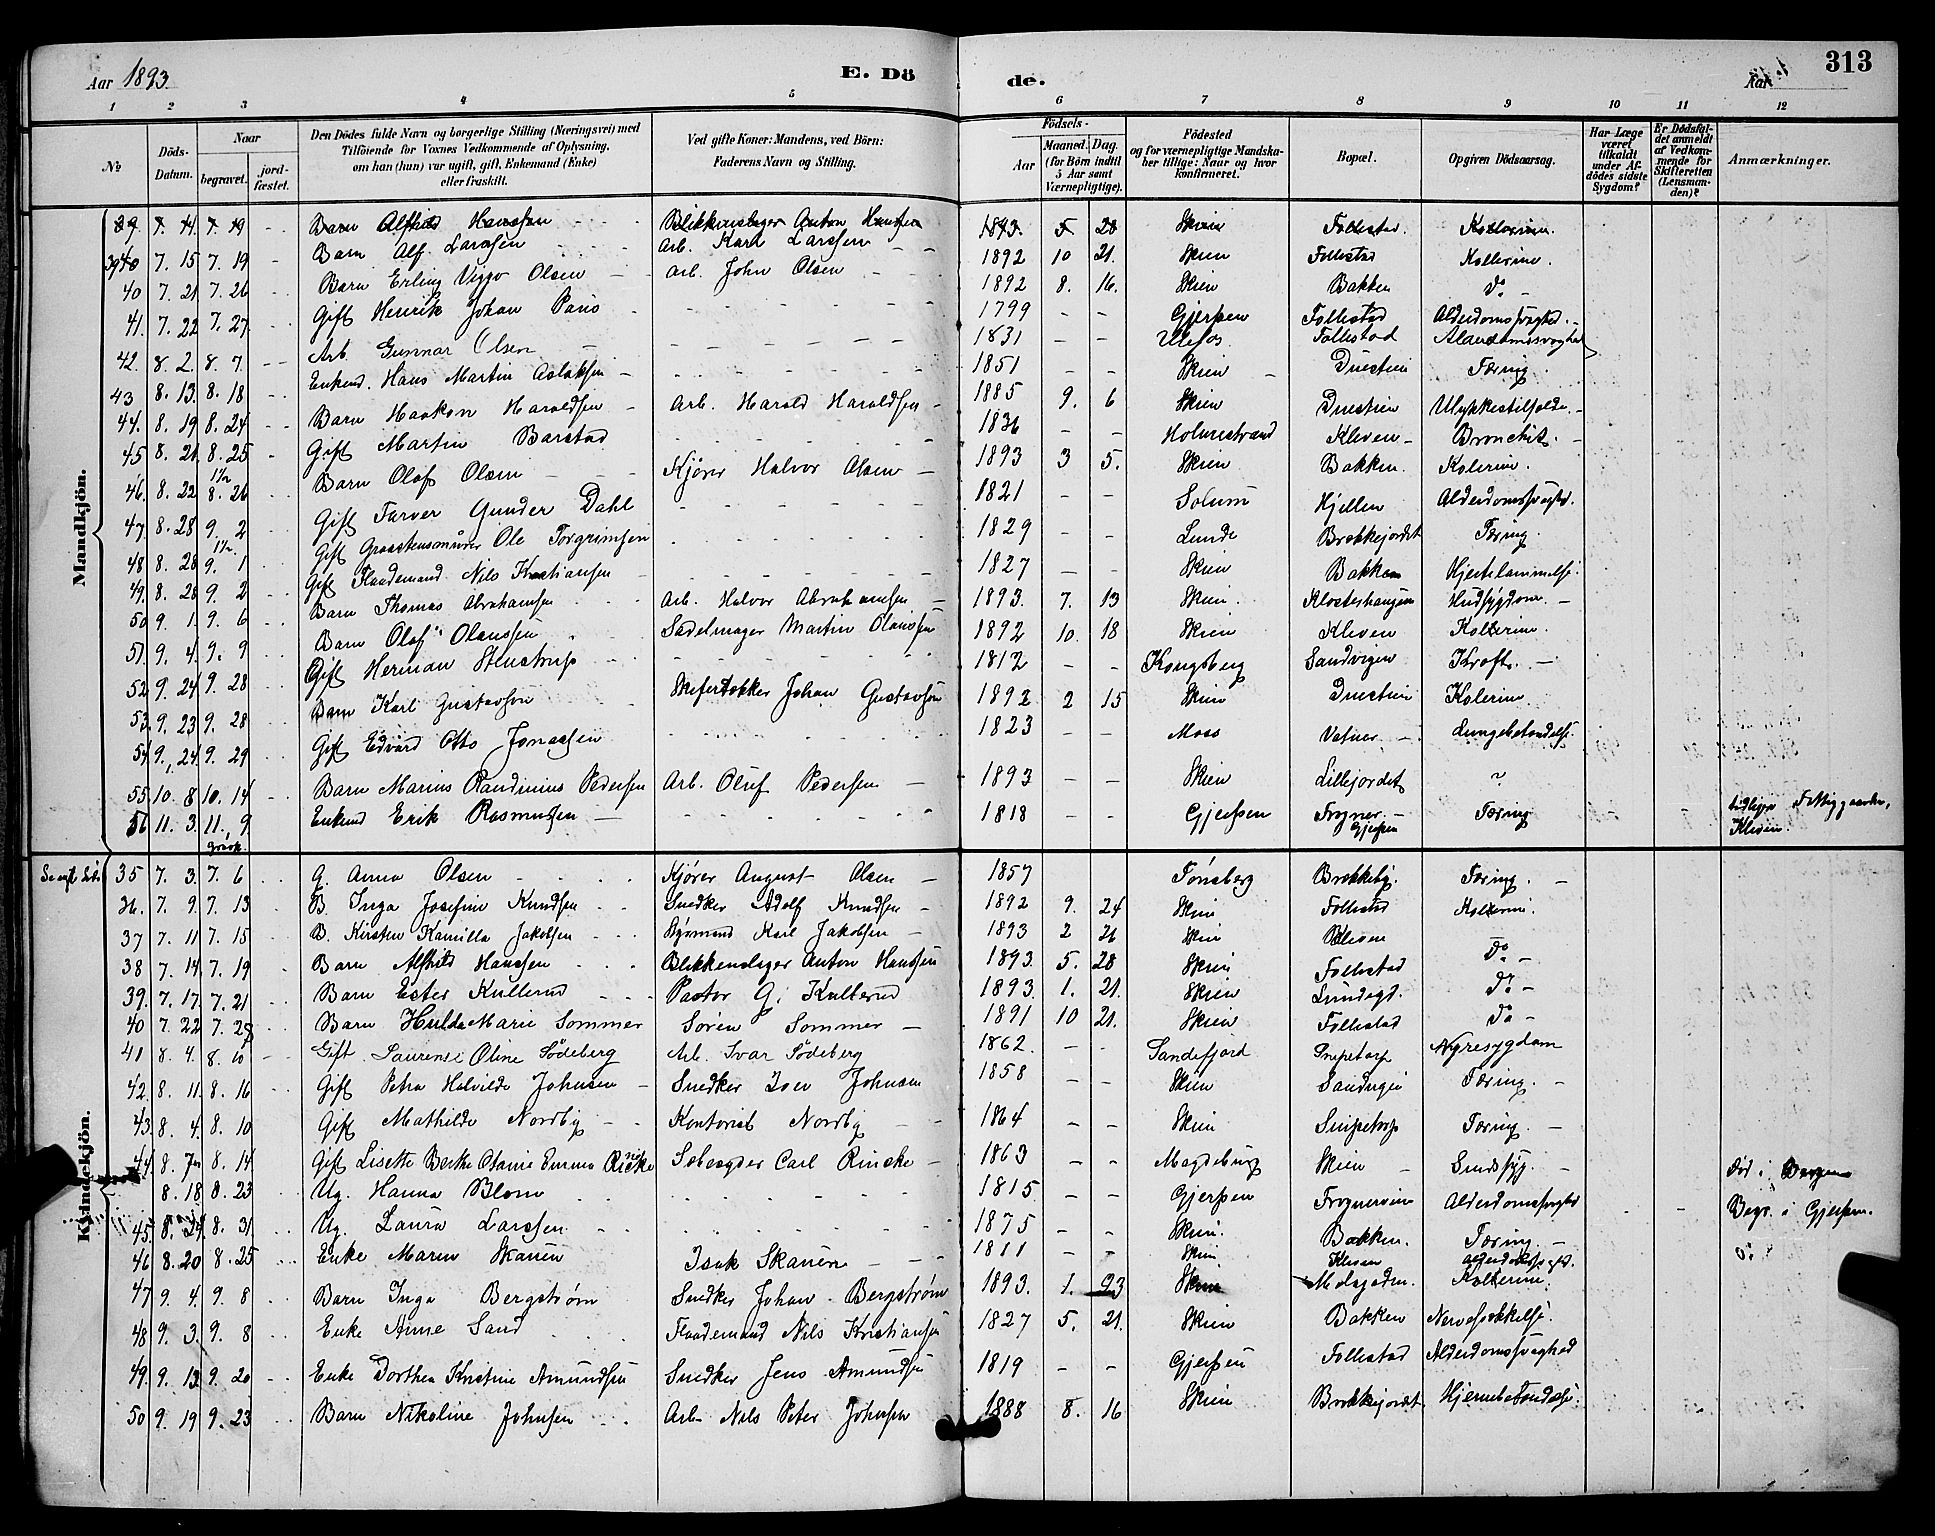 Aar 1893. E. Dö de. Aar 313
1 2 3 4 5 6 7 8 9 10 11 12
No Döds-Datum. Naar begravet. jordfæstet. Den Dödes fulde Navn og borgerlige Stilling (Næringsvei) med Tilföiende for Voxnes Vedkommende af Oplysning, om han (hun) var ugift, gift, Enkemand (Enke) eller fraskilt. Ved gifte Koner: Mandens, ved Börn: Faderens Navn og Stilling. Födsels- Aar Maaned. Dag. (for Börn indtil 5 Aar samt Værnepligtige). Födested og for værnepligtige Mandskaber tillige: Naar og hvor konfirmeret. Bopæl. Opgiven Dödsaarsag. Har Læge været tilkaldt under Afdödes sidste Sygdom? Er Dödsfaldet anmeldt af Vedkommende for Skifteretten (Lensmanden)? Anmærkninger.
Mandkjön.
39. 7. 14. 7. 19 Barn Alfhild Hanssen Blikkenslager Anton Hanssen 1893. 5 28 Skien Follestad. Kolerine.
39 40 7. 15 7. 19 Barn Alf Larssen Arb. Karl Larssen 1892 10 21. Skien Follestad Kollerine.
40 7. 21 7. 26 Barn Erling Viggo Olsen Arb. John Olsen 1892 8. 16. Skien Bakken Do
41. 7. 22 7. 27. Gift Henrik Johan Paus 1799 Gjerpen Follestad Alderdomssvaghed.
42. 8. 2. 8. 7 Arb. Gunnar Olsen 1831 Ulefos Follestad Alderdomssvaghed
43 8. 13. 8. 18 Enkem. Hans Martin Aslaksen 1851 Skien Duestien Tæring.
44. 8. 19 8. 24 Barn Haakon Haraldsen Arb. Harald Haraldsen 1885 9. 6 Skien Duestien Ulykkestilfælde.
45 8. 21. 8. 25 Gift Martin Barstad 1836 Holmestrand Kleven Bronchit.
46. 8. 22 8. 26 1/2 Barn Olaf Olsen Kjører Halvor Olsen 1893 3 5. Skien Bakken. Kolerine.
47. 8. 28 9. 2 Gift Farver Gunder Dahl 1821 Solum Hjellen Alderdomssvaghed.
48 8. 28 9. 1 1/2 Gift Graastensmurer Ole Torgrimsen 1829 Lunde Brekkejordet Tæring.
49. 8. 28 9. 2 Gift Flaademand Nils Kristiansen 1827 Skien Bakken Hjertelammelse.
50 9. 1. 9. 6 Barn Thomas Abrahamsen Arb. Halvor Abrahamsen 1893. 7. 13 Skien. Klosterhaugen Hudsygdom.
51. 9. 4. 9. 9 Barn Olaf Olaussen Sadelmager Martin Olaussen 1892 10. 18 Skien Kleven Kolerine.
52 9. 24 9. 28 Gift Herman Stenstrup 1812 Kongsberg Sandvigen Kræft.
53. 9. 23 9. 28 Barn Karl Gustavson Skifertækker Johan Gustavson 1892 2 15 Skien Duestien Kolerine
54 9. 24 9. 29 Gift Edvard Otto Jonassen 1823 Moss Vatner Lungebetændelse.
55 10. 8 10. 14 Barn Marius Randinius Pedersen Arb. Oluf Pedersen 1893 Skien Lillejordet ?
56 11. 3. 11. 9 Enkem Erik Rasmussen 1818 Gjerpen Frogner. Gjerpen Tæring Fattiggaarden, Kleven.
Kvindekjön.
35 7. 3. 7. 6 G. Anna Olsen Kjører August Olsen 1857 Tønsberg Brekkeby. Tæring.
36. 7. 9. 7. 13 B. Inga Josefine Knudsen Snedker Adolf Knudsen 1892 9. 24 Skien Follestad Kolerine.
37 7. 11 7. 15 B. Kirsten Kamilla Jakobsen Karl Jakobsen 1893 2 21 Skien Kleven Do
38 7. 14 7. 19 Barn Alfhild Hanssen Blikkenslager Anton Hanssen 1893. 5. 28 Skien Follestad Do
39. 7. 17. 7. 21 Barn Ester Kullerud Pastor G. Kullerud 1893. 1. 21. Skien Lundegd. Do
40 7. 22 7. 28 Barn Hulda Marie Sommer Sören Sommer 1891 10 21. Skien Follestad Do
41 8. 4. 8. 10 Gift Laurense Oline Södeberg Arb. Ivar Södeberg 1862. Sandefjord Snipetorp Nyresygdom
42. 8. 11. 8. 16 Gift Petra Halvilde Johnsen Snedker Iver Johnsen 1858 Skien Sandvigen Tæring.
43. 8. 4. 8. 10 Gift Mathilde Nordby Kontorist Nordby 1864 Skien Snipetorp Tæring.
44 8. 7 8. 14 Gift Lisette Berthe Otanie Emma Rincke Carl Rincke 1863 Magdeburg Skien Sindssyg. Død i Bergen
8. 18 8. 23 Ug. Hanna Blom 1815 Gjerpen Frogner Alderdomssvaghed Begr. i Gjerpen.
45. 8. 24 8. 31 Ug. Laura Larssen 1875 Skien. Bakken. Tæring.
46 8. 20 8. 25 Enke Maren Skauen Isak Skauen 1811 Skien Kleven Alderdomssvagh. Do
47 9. 4. 9. 8 Barn Inga Bergstrøm Snedker Johan Bergstrøm 1893. 1. 23 Skien Kolerine.
48. 9. 3. 9. 8 Enke Anne Sand Flaademand Nils Kristiansen 1827 5. 21. Skien Bakken
49. 9. 13 9. 20 Enke Dorthea Kristine Amundsen Snedker Jens Amundsen 1819 Gjerpen Follestad Alderdomssvaghed
50 9. 19 9. 23 Barn Nikoline Johnsen Arb Nils Peter Johnsen 1888 8. 16 Skien Brekkejordet Hjernebetændelse.